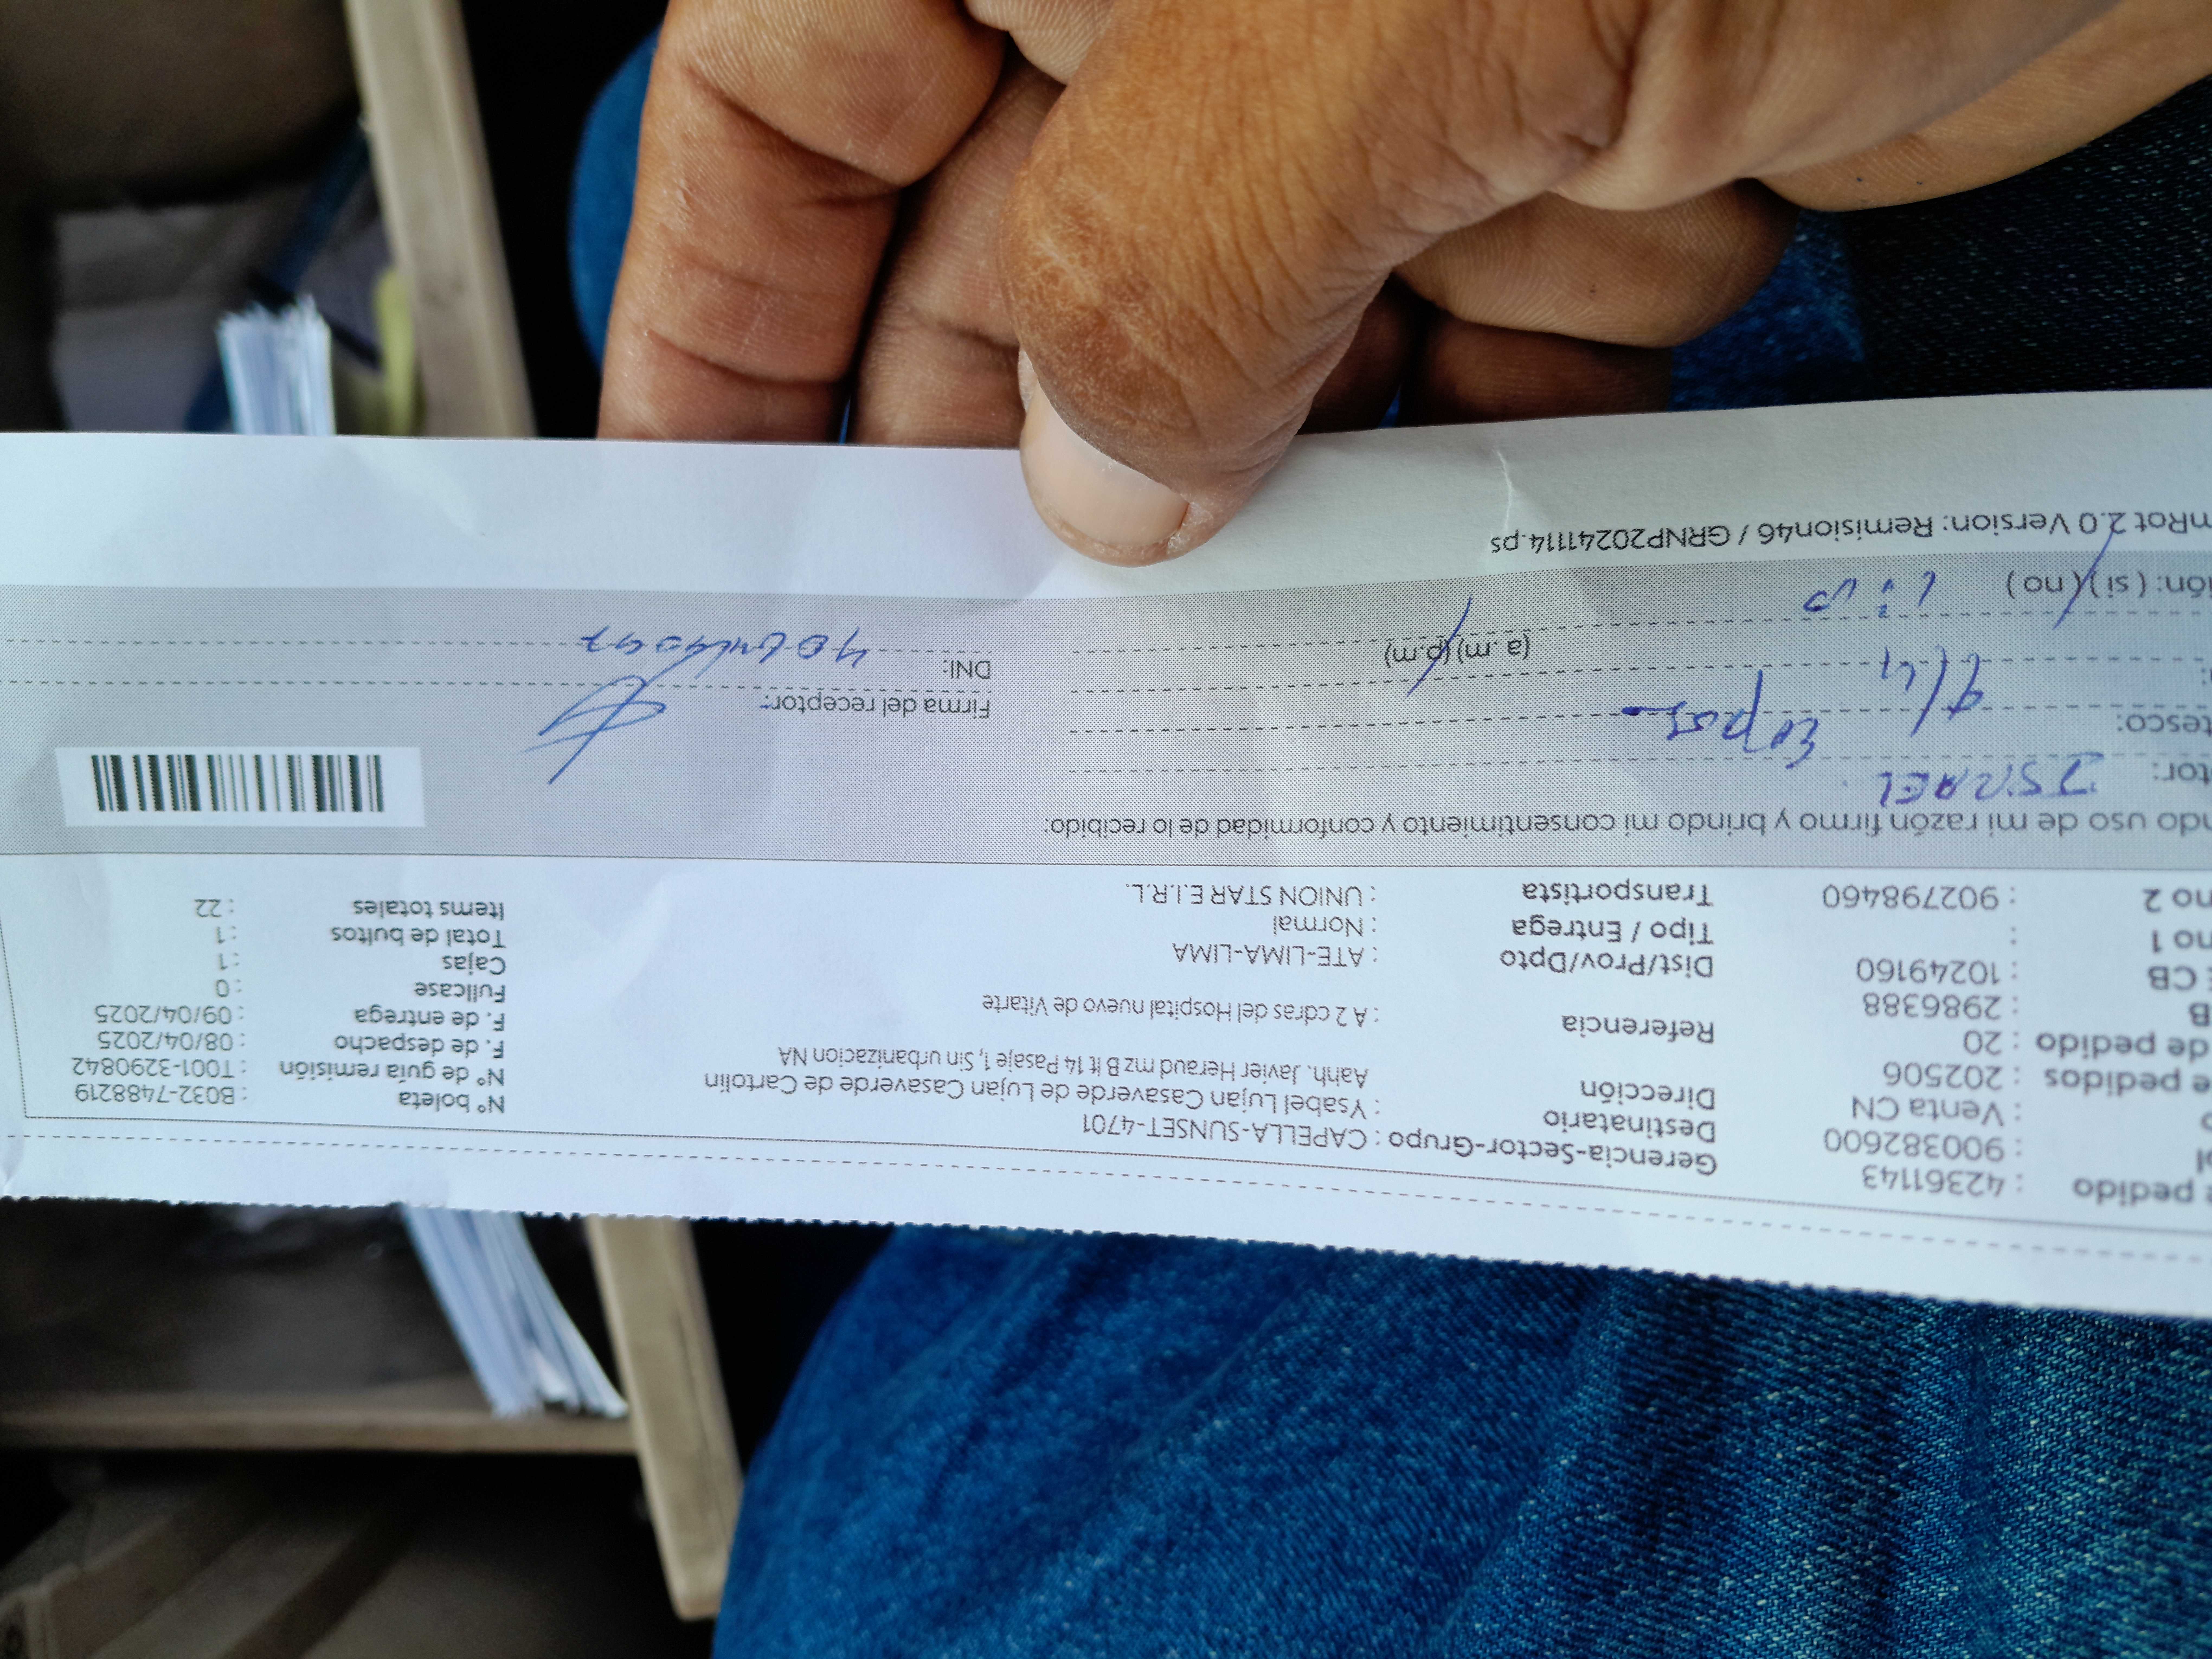 pedido : 42361143
: 900382600
: Venta CN
de pedidos : 202506
de pedido : 20
B : 2986388
CB : 10249160
no 1 :
no 2 : 902798460
Gerencia-Sector-Grupo : CAPELLA-SUNSET-4701
Destinatario : Ysabel Lujan Casaverde de Lujan Casaverde de Cartolin
Dirección Aahh. Javier Heraud mz B lt 14 Pasaje 1, Sin urbanizacion NA
Referencia : A 2 cdras del Hospital nuevo de Vitarte
Dist/Prov/Dpto : ATE-LIMA-LIMA
Tipo / Entrega : Normal
Transportista : UNION STAR E.I.R.L.
Nº boleta : B032-7488219
Nº de guía remisión : T001-3290842
F. de despacho : 08/04/2025
F. de entrega : 09/04/2025
Fullcase : 0
Cajas : 1
Total de bultos : 1
Items totales : 22
ndo uso de mi razón firmo y brindo mi consentimiento y conformidad de lo recibido:
tor: ISRAEL
tesco: Esposo
9/4
(a. m) (p.m)
Firma del receptor:
DNI:
ión: ( si ) ( no )
mRot 2.0 Version: Remision46 / GRNP20241114.ps